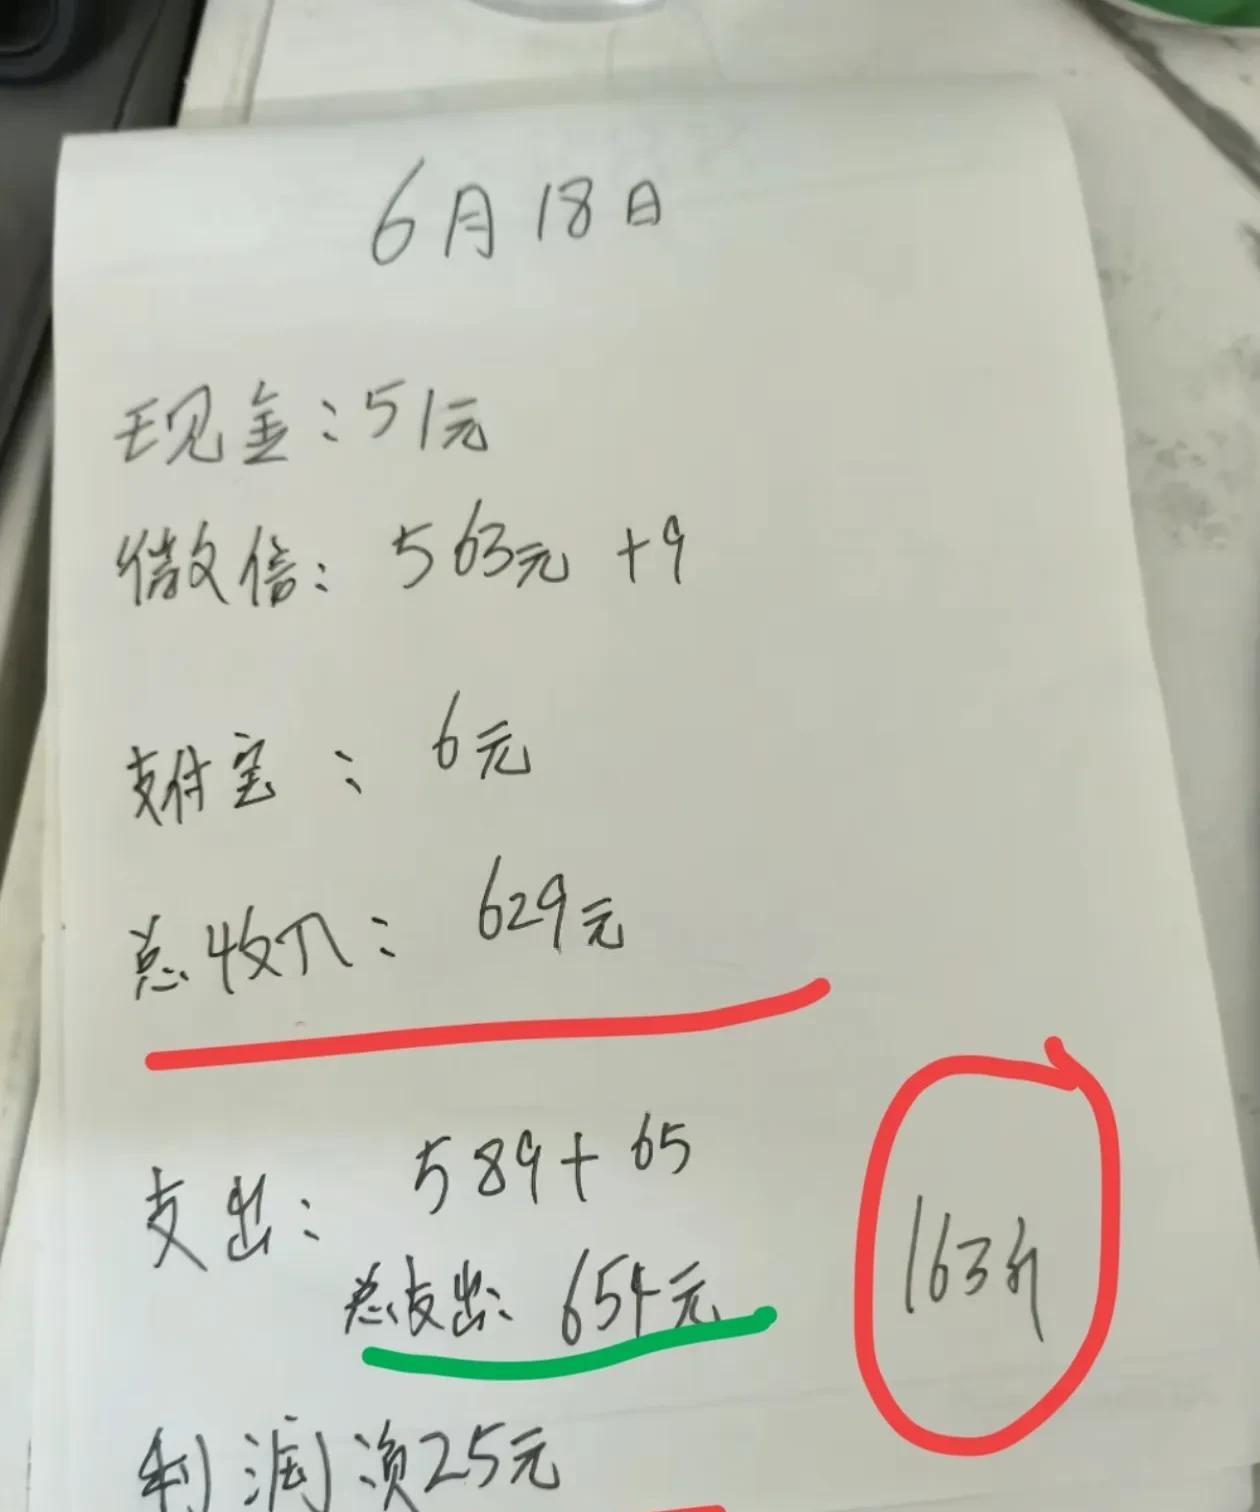 6月18日
现金:51元
微信: 563元 +9
支付宝: 6元
总收入: 629元
支出: 589+65
总支出: 654元
163斤
利润 25元